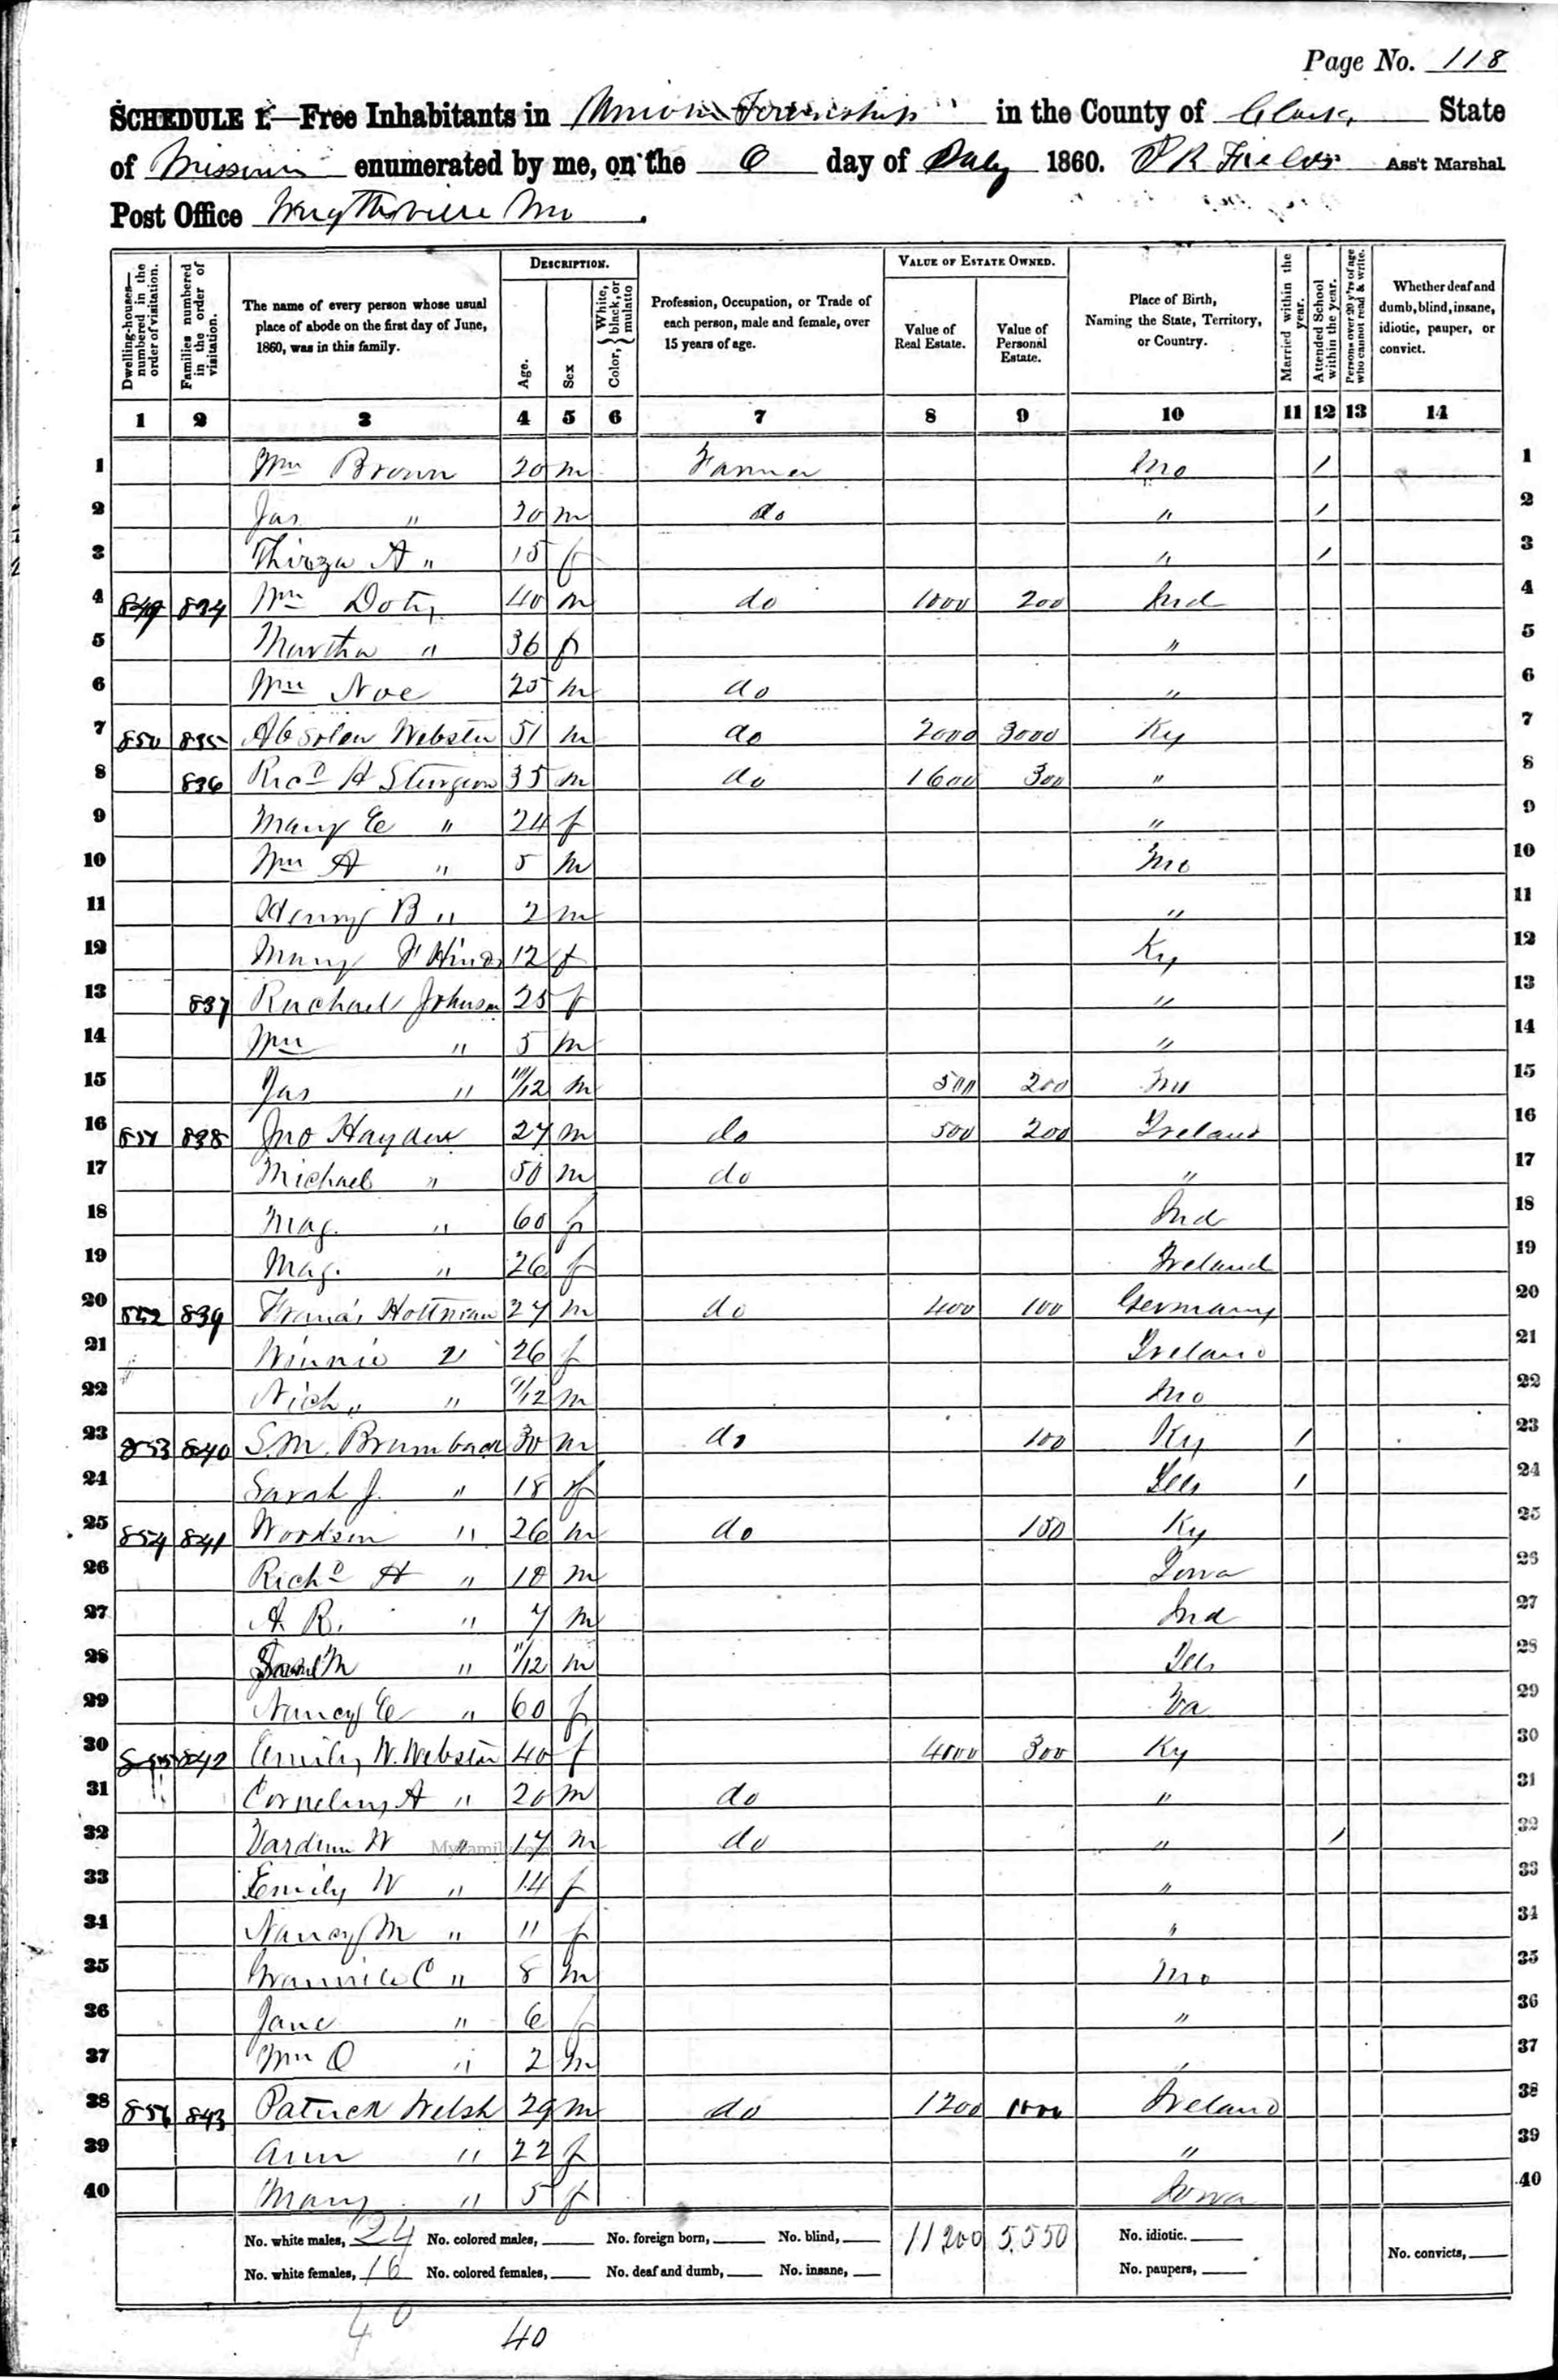 Page No. 118
SCHEDULE 1.—Free Inhabitants in Union Township in the County of Clark State
of Missouri enumerated by me, on the 6 day of July 1860. P R Fields Ass't Marshal
Post Office Mo.
Dwelling-houses—numbered in the order of visitation. Families numbered in the order of visitation. The name of every person whose usual place of abode on the first day of June, 1860, was in this family. DESCRIPTION. Age. Sex Color, White, black, or mulatto Profession, Occupation, or Trade of each person, male and female, over 15 years of age. VALUE OF ESTATE OWNED. Value of Real Estate. Value of Personal Estate. Place of Birth, Naming the State, Territory, or Country. Married within the year. Attended School within the year. Persons over 20 y'rs of age who cannot read & write. Whether deaf and dumb, blind, insane, idiotic, pauper, or convict.
1 2 3 4 5 6 7 8 9 10 11 12 13 14
1 Wm Brown 20 m Farmer Mo / 1
2 Jas " m do " / 2
3 Thirza A " 15 f " / 3
4 849 834 Wm Doty 40 m do 1000 200 Ind 4
5 Martha " 36 f " 5
6 Wm Noe 25 m do " 6
7 850 835 Absolom Webster 51 m do 2000 3000 Ky 7
8 836 Ricd H Sturgeon 35 m do 1600 300 " 8
9 Mary E " 24 f " 9
10 Wm A " 5 m Mo 10
11 Henry B " 2 m " 11
12 Mary F Hinds 12 f Ky 12
13 837 Rachael Johnson 25 f " 13
14 Wm " 5 m " 14
15 Jas " /12 m 500 200 Mo 15
16 851 838 Jno Hayden 27 m do 500 200 Ireland 16
17 Michael " 50 m do " 17
18 Mag. " 60 f Ind 18
19 Mag. " 26 f Ireland 19
20 852 839 Francis Hottman 27 m do 400 100 Germany 20
21 Winnie " 26 f Ireland 21
22 Nich. " /12 m Mo 22
23 853 840 S.M. Brumback 30 m do 100 Ky / 23
24 Sarah J. " 18 f Ills / 24
25 854 841 Woodson " 26 m do 150 Ky 25
26 Richd H " 10 m Iowa 26
27 A R. " 7 m Ind 27
28 M " 11/12 m Ills 28
29 Nancy E " 60 f Va 29
30 855 842 Emily W. Webster 40 f 4000 300 Ky 30
31 Cornelius A " 20 m do " 31
32 Vardum W " 17 m do " / 32
33 Emily W " 14 f " 33
34 Nancy M " 11 f " 34
35 C " 8 m Mo 35
36 Jane " 6 f " 36
37 Wm O " 2 m " 37
38 856 843 Patrick Welsh 29 m do 1200 1000 Ireland 38
39 Ann " 22 f " 39
40 Mary " 5 f Iowa 40
No. white males, 24 No. colored males, No. foreign born, No. blind, 11200 5,550 No. idiotic. No. convicts,
No. white females, 16 No. colored females, No. deaf and dumb, No. insane, No. paupers,
40 40